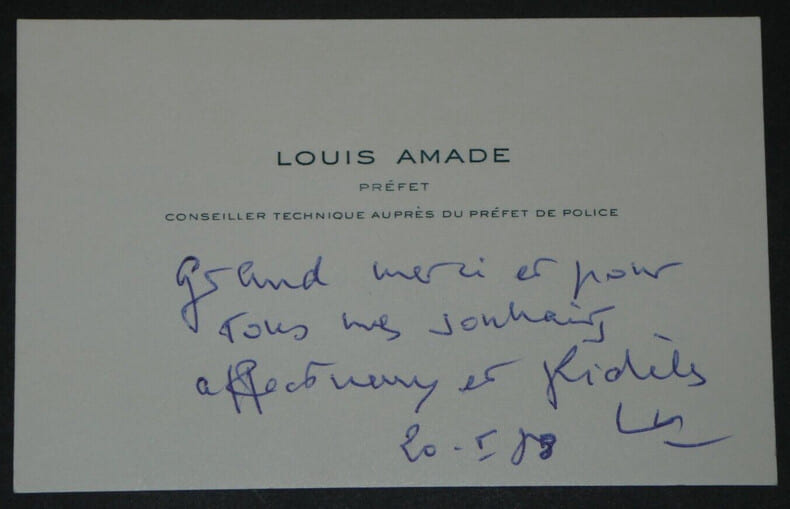 LOUIS AMADE
PRÉFET
CONSEILLER TECHNIQUE AUPRÈS DU PRÉFET DE POLICE
Grand merci et pour
tous mes souhaits
affectueux et fidèles
20-I 83